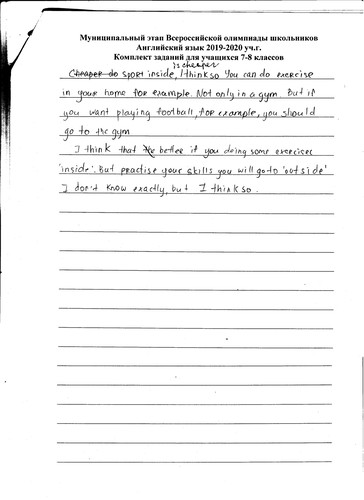 Муниципальный этап Всероссийской олимпиады школьников
Английский язык 2019-2020 уч.г.
Комплект заданий для учащихся 7-8 классов
is cheaper
Cheaper do sport inside, I think so You can do exercise
in your home for example. Not only in a gym. But if
you want playing football, for example, you should
go to the gym
I think that the better if you doing some exercises
'inside'. But practise your skills you will go to 'outside'
I don't know exactly, but I think so.